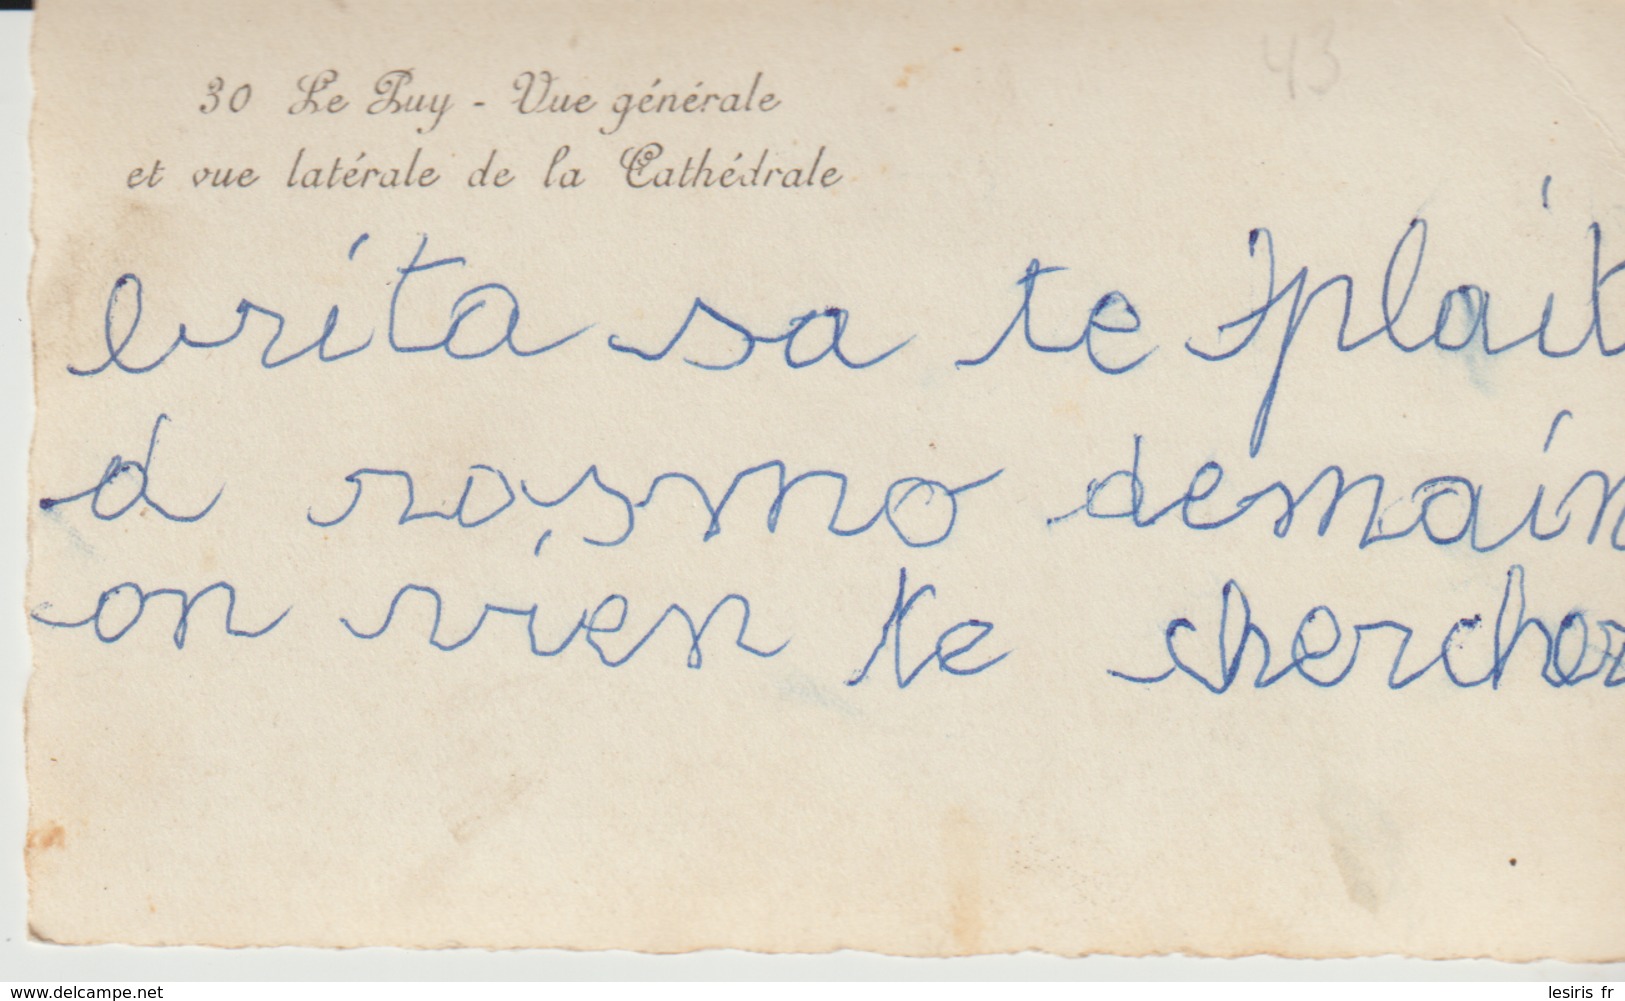 43
30 Le Puy - Vue générale
et vue latérale de la Cathédrale
sa te plait
a rosmo demain
on vien te chercher
www.delcampe.net
lesiris fr